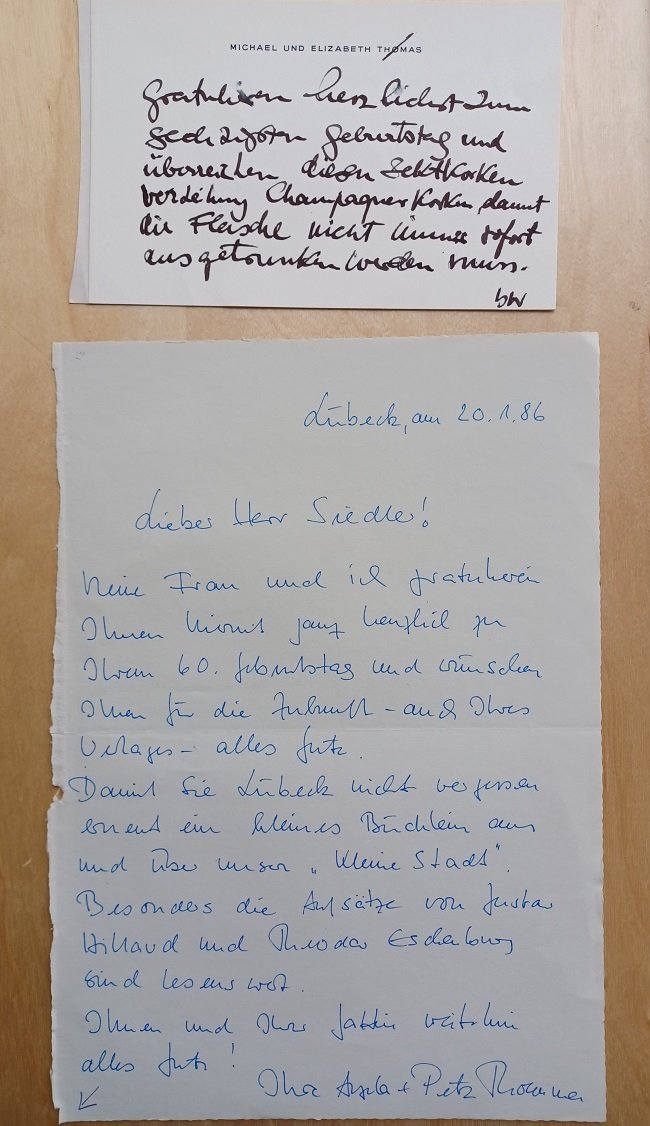 MICHAEL UND ELIZABETH THOMAS
gratulieren herzlichst zum
sechzigsten Geburtstag und
überreichen diesen Sektkorken
Verzeihung Champagner Korken, damit
die Flasche nicht immer sofort
ausgetrunken werden muss.
Lübeck, am 20.1.86
Lieber Herr Siedler!
Meine Frau und ich gratulieren
Ihnen hiermit ganz herzlich zu
Ihrem 60. Geburtstag und wünschen
Ihnen für die Zukunft – auch Ihres
Verlages – alles Gute.
Damit Sie Lübeck nicht vergessen
erneut ein kleines Büchlein aus
und über unser „Kleine Stadt".
Besonders die Aufsätze von Gustav
Hillard und Theodor Eschenburg
sind lesenswert.
Ihnen und Ihrer Gattin weiterhin
alles Gute!
Ihre + Peter